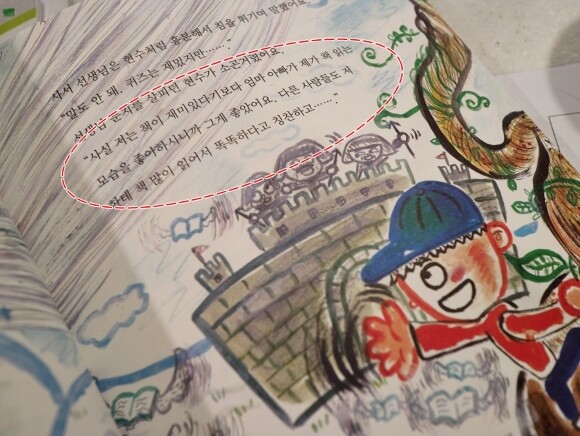 사서 선생님은 현수처럼 흥분해서 침을 튀기며 말했어요.
"말도 안 돼. 퀴즈는 재밌지만……."
선생님 눈치를 살피던 현수가 소곤거렸어요.
"사실 저는 책이 재미있다기보다 엄마 아빠가 제가 책 읽는
모습을 좋아하시니까 그게 좋았어요. 다른 사람들도 저
한테 책 많이 읽어서 똑똑하다고 칭찬하고……."